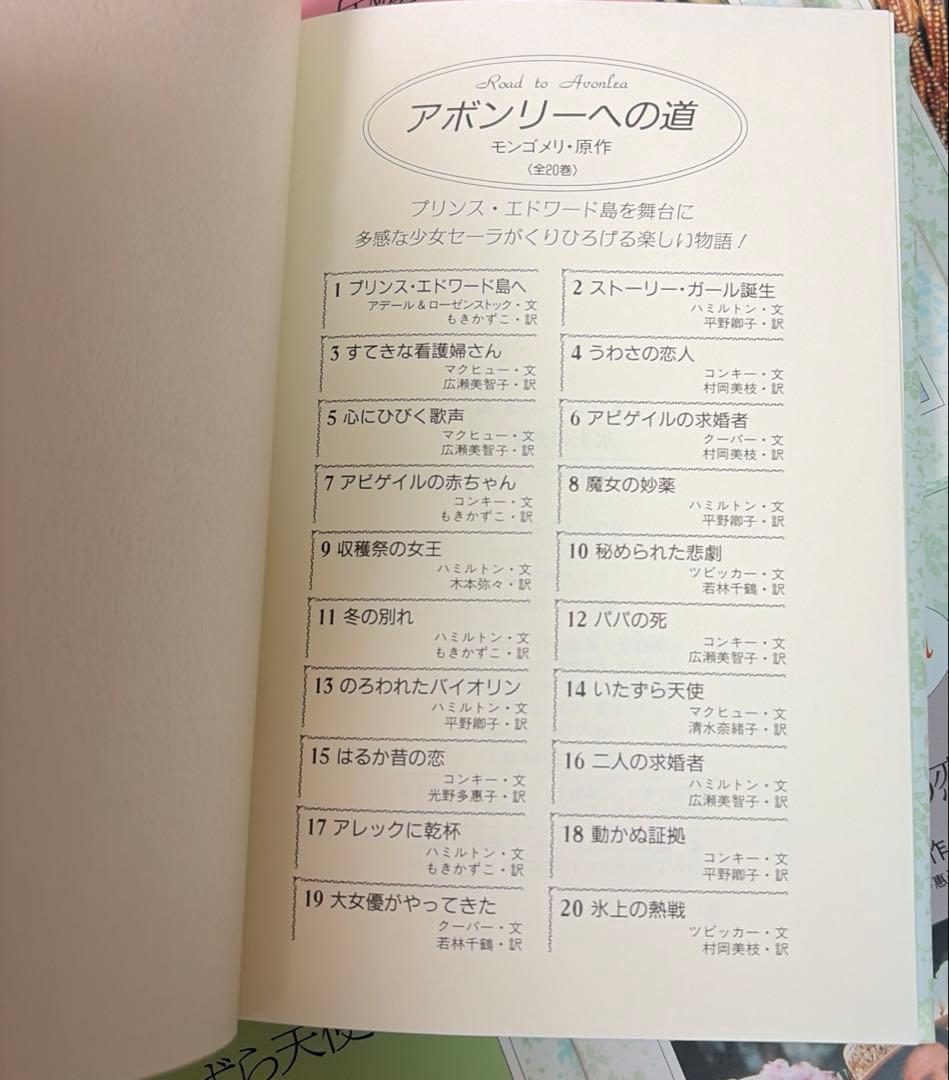 Road to Avonlea
アボンリーへの道
モンゴメリ・原作
〈全20巻〉
プリンス・エドワード島を舞台に
多感な少女セーラがくりひろげる楽しい物語！
1 プリンス・エドワード島へ
アデール&ローゼンストック・文
もきかずこ・訳
2 ストーリー・ガール誕生
ハミルトン・文
平野卿子・訳
3 すてきな看護婦さん
マクヒュー・文
広瀬美智子・訳
4 うわさの恋人
コンキー・文
村岡美枝・訳
5 心にひびく歌声
マクヒュー・文
広瀬美智子・訳
6 アビゲイルの求婚者
クーパー・文
村岡美枝・訳
7 アビゲイルの赤ちゃん
コンキー・文
もきかずこ・訳
8 魔女の妙薬
ハミルトン・文
平野卿子・訳
9 収穫祭の女王
ハミルトン・文
木本弥々・訳
10 秘められた悲劇
ツビッカー・文
若林千鶴・訳
11 冬の別れ
ハミルトン・文
もきかずこ・訳
12 パパの死
コンキー・文
広瀬美智子・訳
13 のろわれたバイオリン
ハミルトン・文
平野卿子・訳
14 いたずら天使
マクヒュー・文
清水奈緒子・訳
15 はるか昔の恋
コンキー・文
光野多惠子・訳
16 二人の求婚者
ハミルトン・文
広瀬美智子・訳
17 アレックに乾杯
ハミルトン・文
もきかずこ・訳
18 動かぬ証拠
コンキー・文
平野卿子・訳
19 大女優がやってきた
クーパー・文
若林千鶴・訳
20 氷上の熱戦
ツビッカー・文
村岡美枝・訳
ずら天使